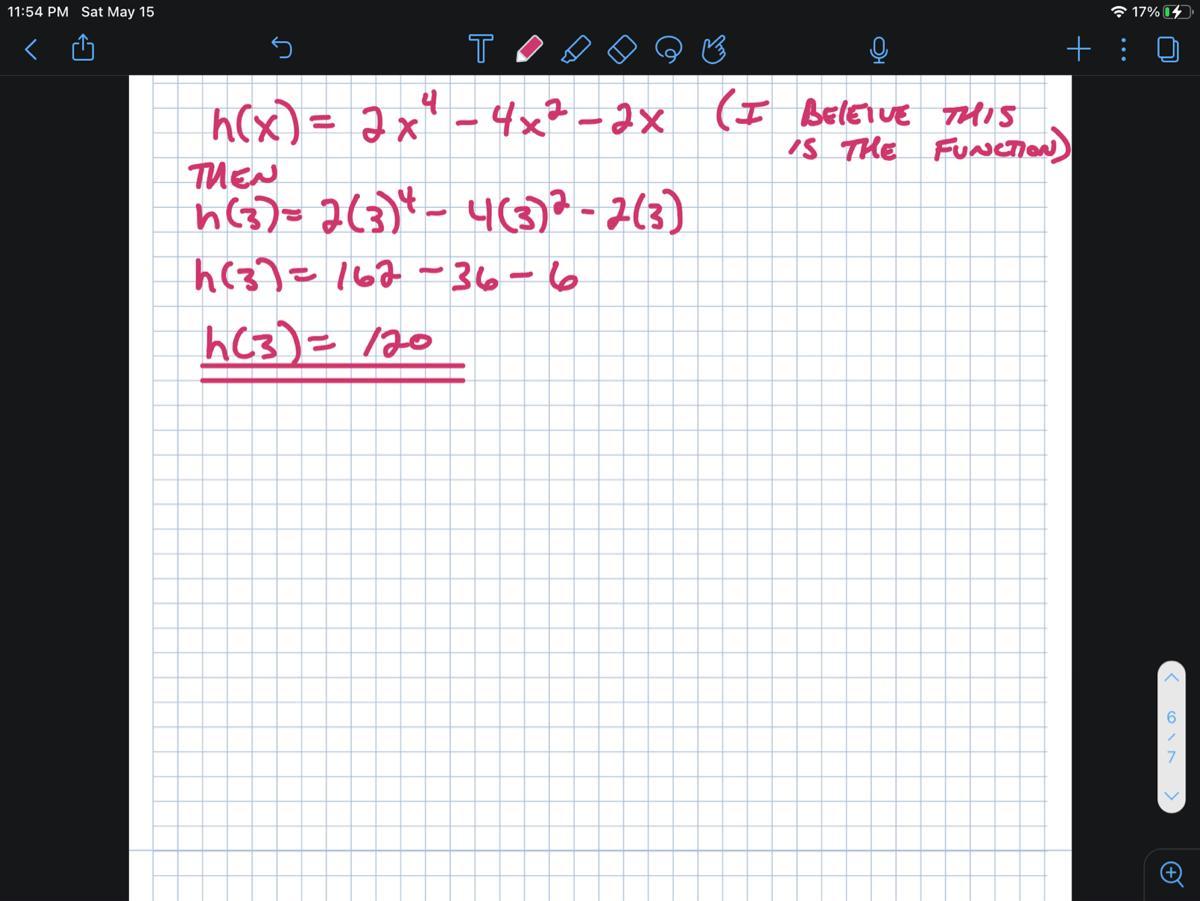 11:54 PM Sat May 15
17%
T
h(x) = 2x⁴ - 4x² - 2x (I BELEIVE THIS
IS THE FUNCTION)
THEN
h(3) = 2(3)⁴ - 4(3)² - 2(3)
h(3) = 162 - 36 - 6
h(3) = 120
6
/
7